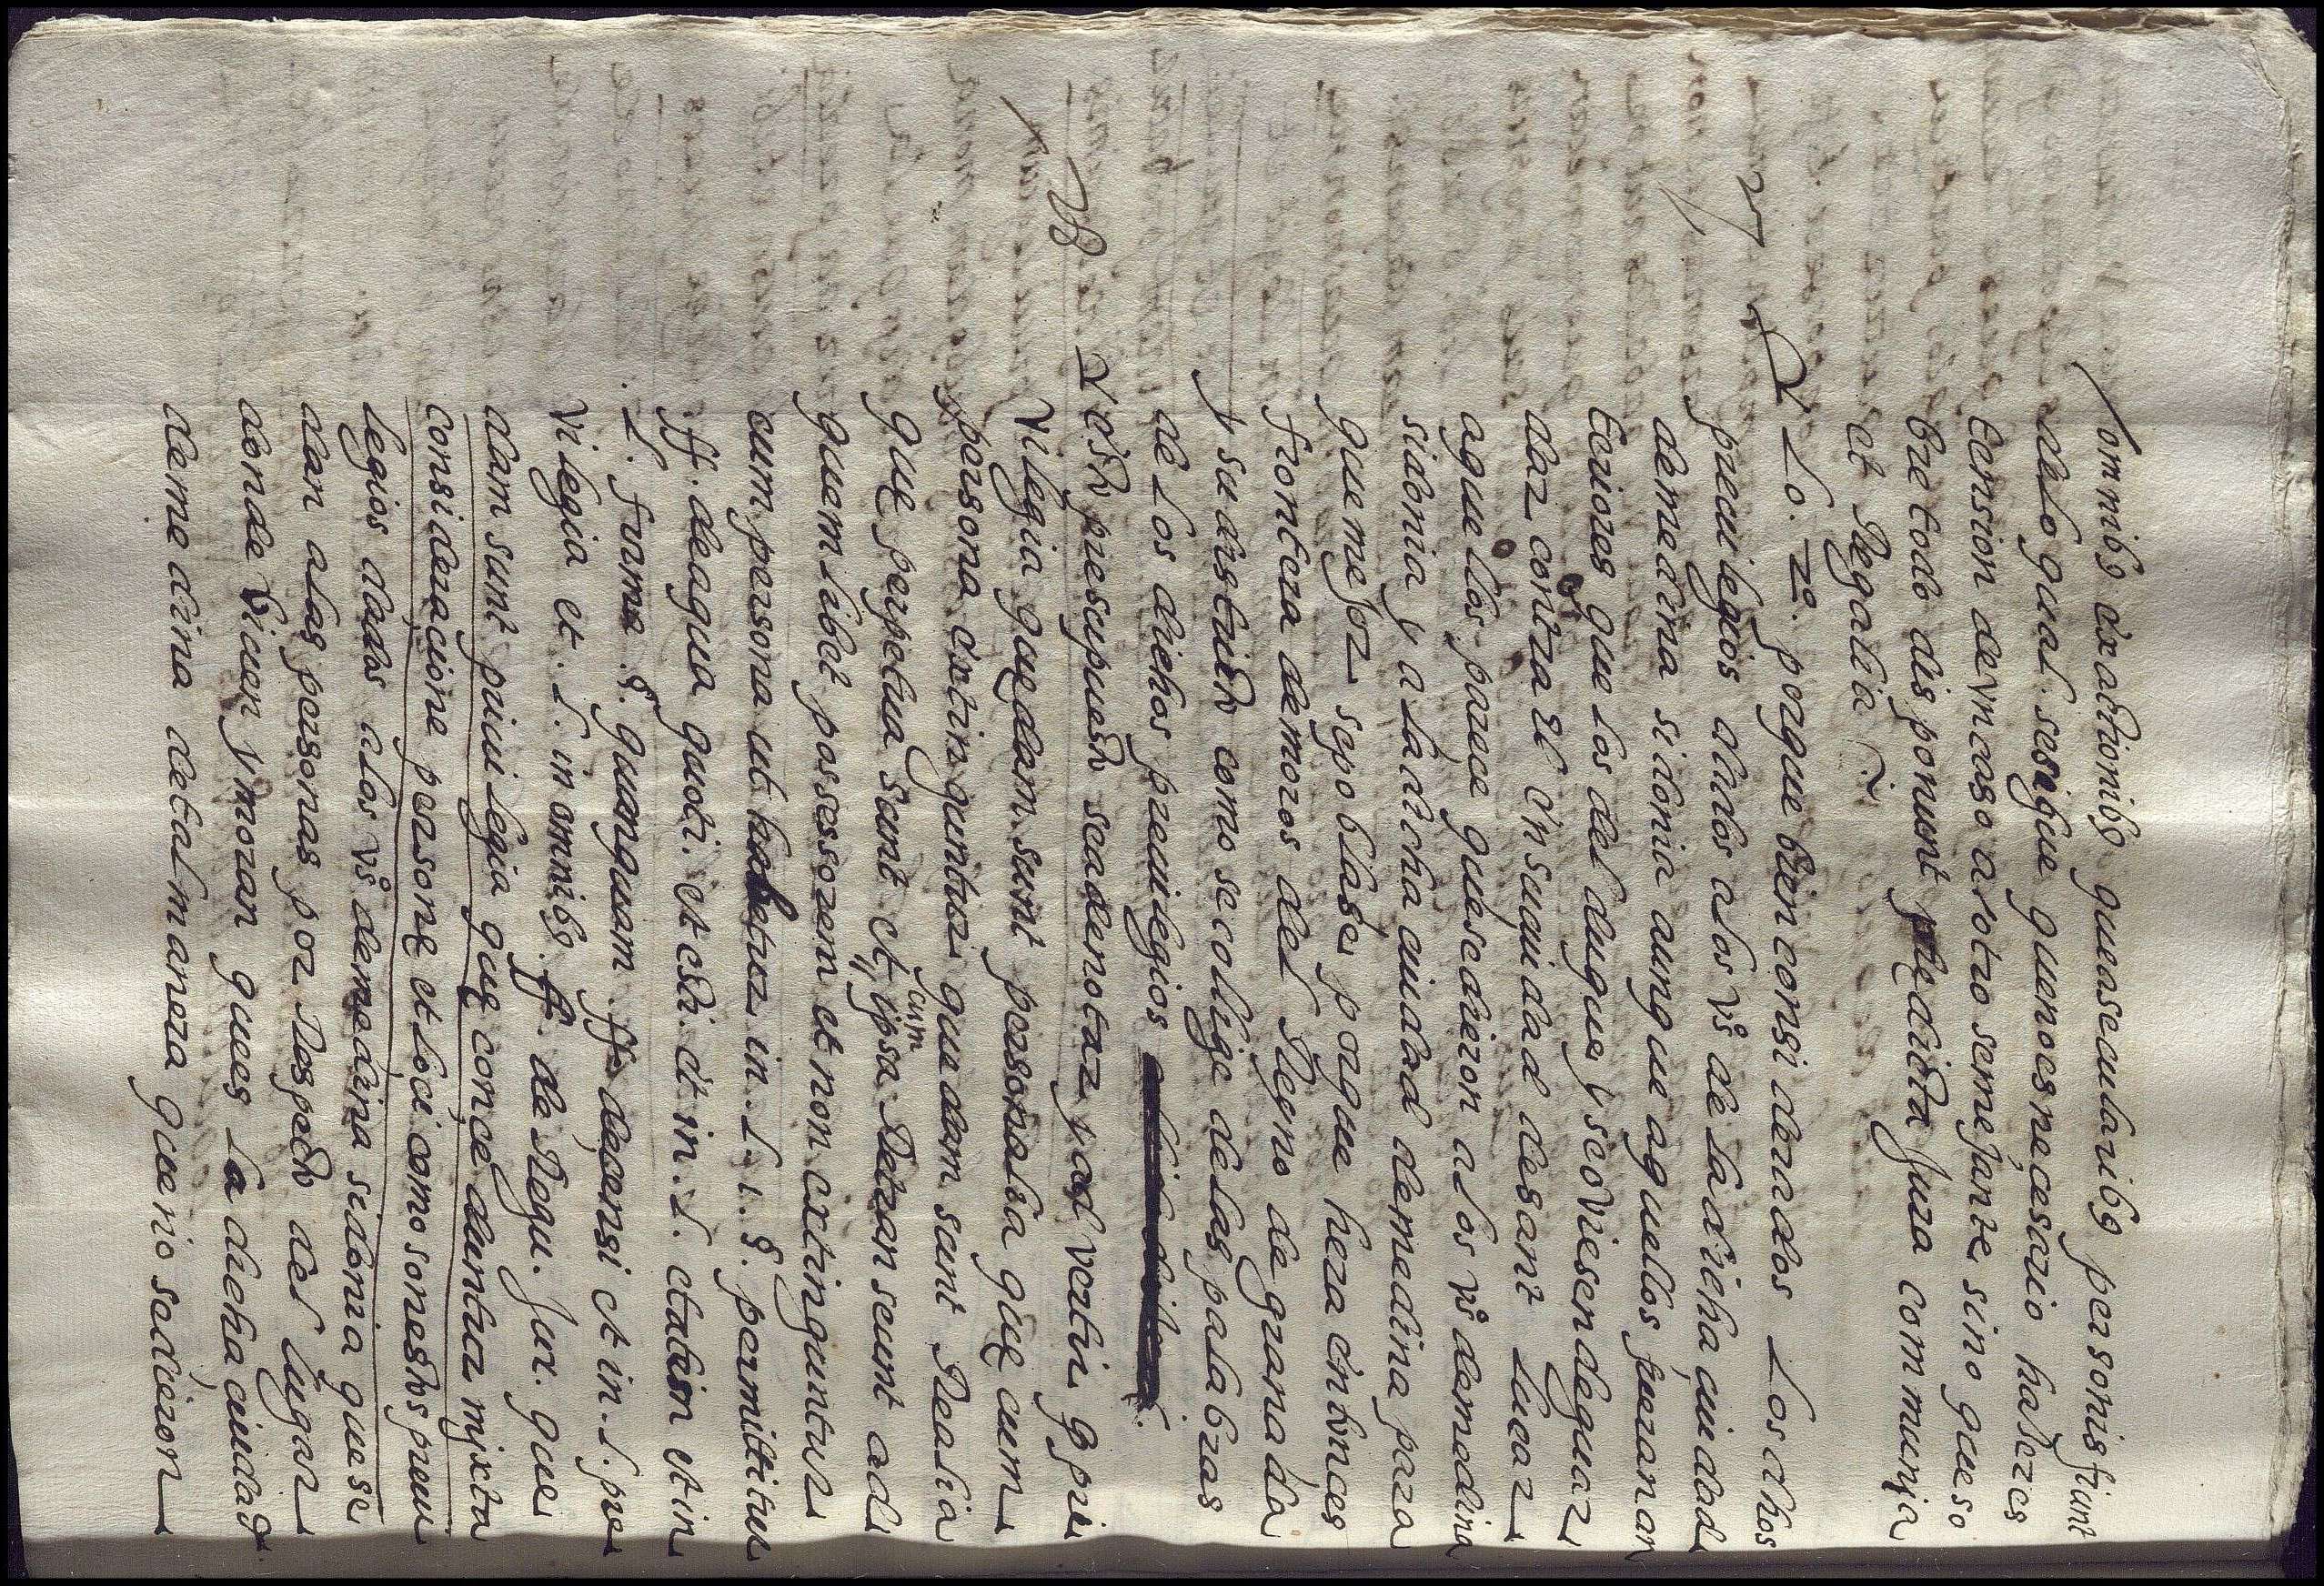 omnibꝯ exactionibꝯ que a secularibꝯ personis fiunt
delo qual. sesigue que no es necesario hazer ex
tension de vn caso a otro semejante sino que so
bre todo disponunt predicta Jura communia
et Regalia ~
27 Lo. 2º. porque bien considerados Los dhos
preuilegios dados a los vºs de la dicha ciudad
de medina sidonia aunque aquellos fueran an
teriores que los del duque y se oviesen de guar
dar contra el en sanlucar
aquellos parece que se dieron a los vºs de medina
sidonia y a la dicha ciudad de medina para
que mejor se poblase porque hera entonces
frontera de moros del Regno de granada
y su distrito como se colige de las palabras
de los dichos preuilegios
28 Y esto presupuesto se a de notar y advertir q pri
vilegia quedam sunt personalia que cum
persona extinguntur quedam sunt Realia
que perpetua sunt et cum ipsa Re transeunt ad
quemlibet possessorem et non extinguntur
cum persona ut habetur in. l. 1. §. permittitur
ff. de aqua quoti. et est. et in. l. etatem et in
. l. forma. §. quanquam. ff. de censi et in. l. pre
vilegia et. l. in omnibꝯ. ff. de Regu. Jur. que
dam sunt priuilegia que conceduntur mixta
consideracione persone et loci como son estos preui
legios dados a los vºs de medina sidonia que se
dan a las personas por Respecto del lugar
donde viuen y moran que es la dicha ciudad
de medina de tal manera que no se dieron